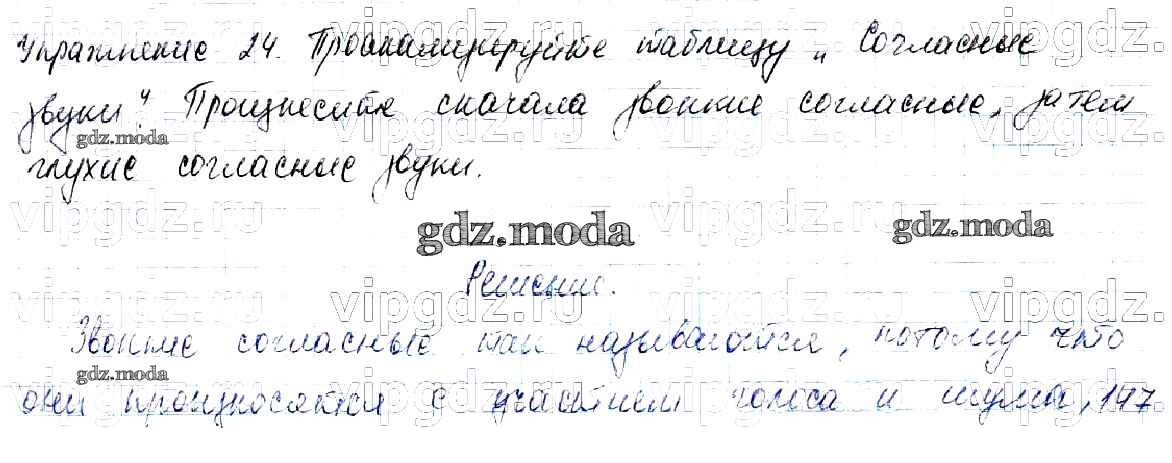 Упражнение 24. Проанализируйте таблицу „Согласные
звуки". Произнесите сначала звонкие согласные, затем
глухие согласные звуки.
Решение.
Звонкие согласные так называются, потому что
они произносятся с участием голоса и шума, 147
vipgdz.ru
gdz.moda
gdz.moda
gdz.moda
gdz.moda